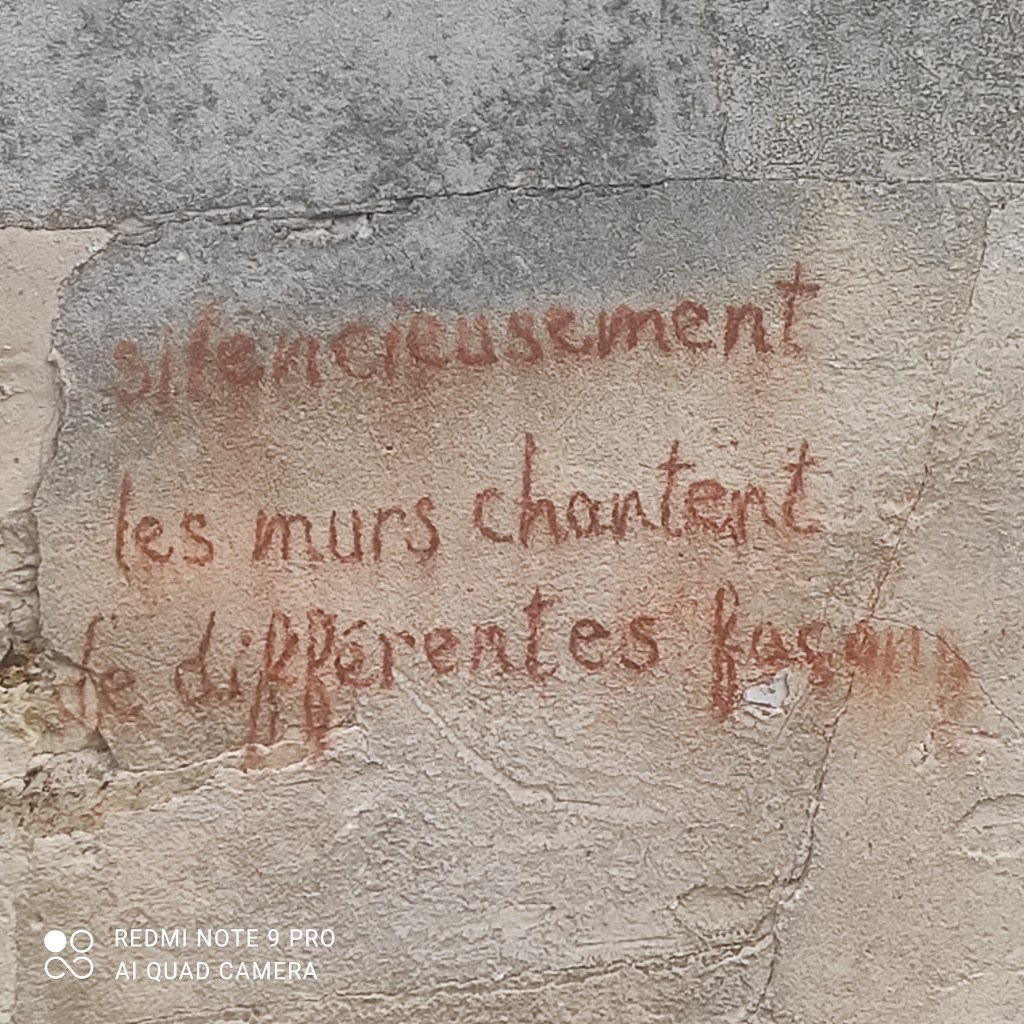 silencieusement
les murs chantent
de différentes façons
REDMI NOTE 9 PRO
AI QUAD CAMERA